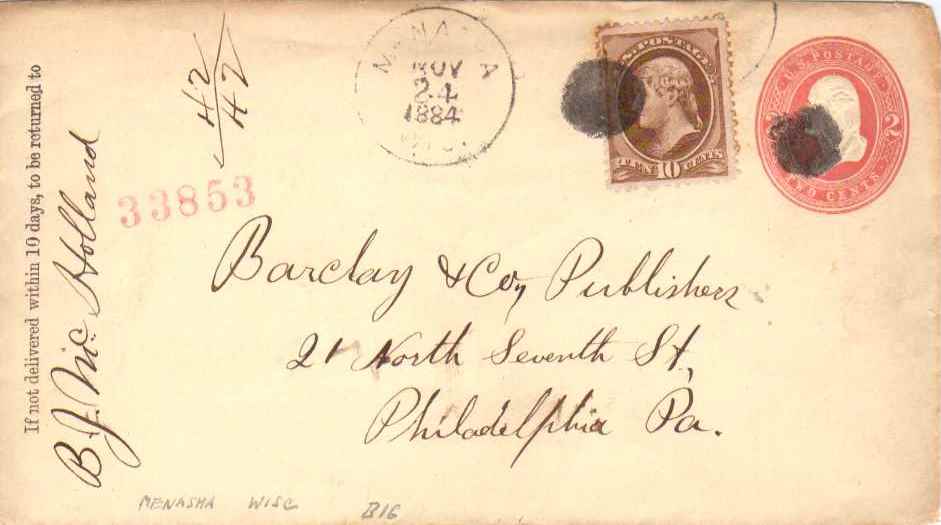 If not delivered within 10 days, to be returned to
B. J. Mc. Holland
42
42
33853
NOV
24
1884
WIS.
U.S. POSTAGE
10
U.S. POSTAGE
2
2
TWO CENTS
Barclay & Co, Publishers
21 North Seventh St,
Philadelphia Pa.
MENASHA WISC B16